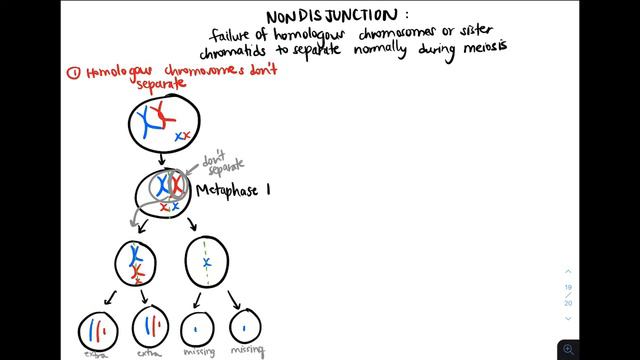 NONDISJUNCTION :
failure of homologous chromosomes or sister
chromatids to separate normally during meiosis
① Homologous chromosomes don't
separate
don't
separate
Metaphase 1
extra
extra
missing
missing
19
/
20